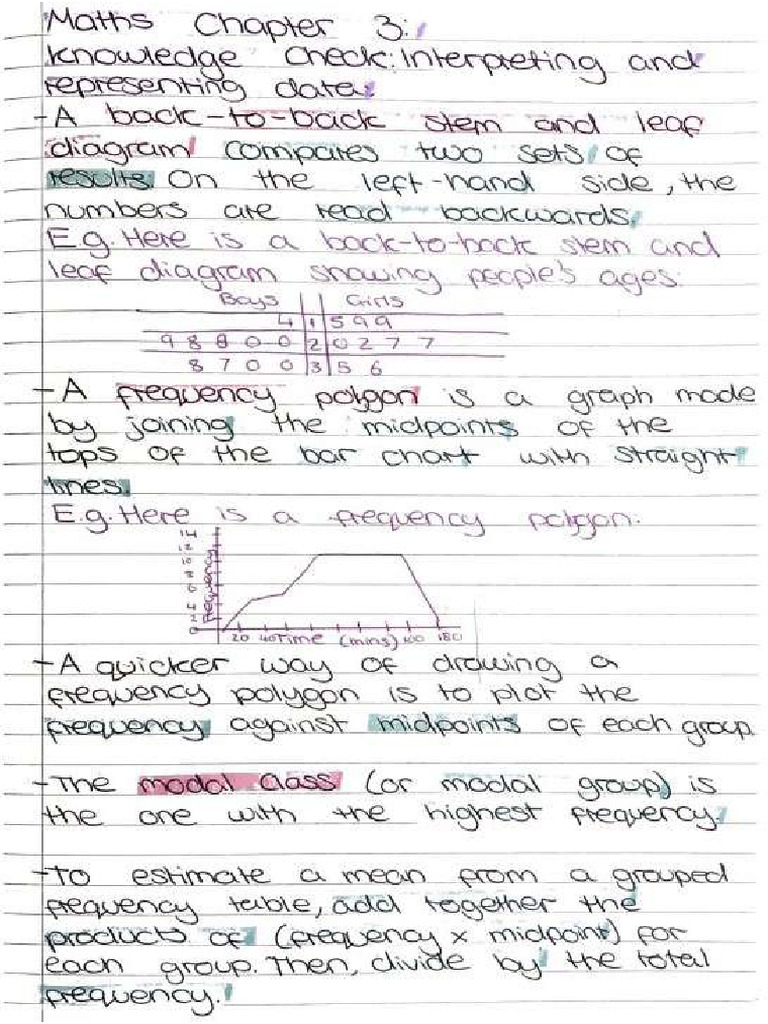 Maths Chapter 3:
Knowledge Check: Interpreting and
representing data:
- A back-to-back stem and leaf
diagram compares two sets of
results. On the left-hand side, the
numbers are read backwards.
E.g. Here is a back-to-back stem and
leaf diagram showing people's ages:
Boys Girls
4 | 1 | 5 9 9
9 8 8 0 0 | 2 | 0 2 7 7
8 7 0 0 | 3 | 5 6
- A frequency polygon is a graph made
by joining the midpoints of the
tops of the bar chart with straight
lines.
E.g. Here is a frequency polygon:
Frequency
20 40 Time (mins)
- A quicker way of drawing a
frequency polygon is to plot the
frequency against midpoints of each group.
- The modal class (or modal group) is
the one with the highest frequency.
- To estimate a mean from a grouped
frequency table, add together the
products of (frequency x midpoint) for
each group. Then, divide by the total
frequency.